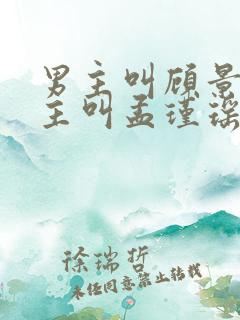 男主叫顾景
主叫孟瑾瑶
徐瑞哲
未经同意禁止转载